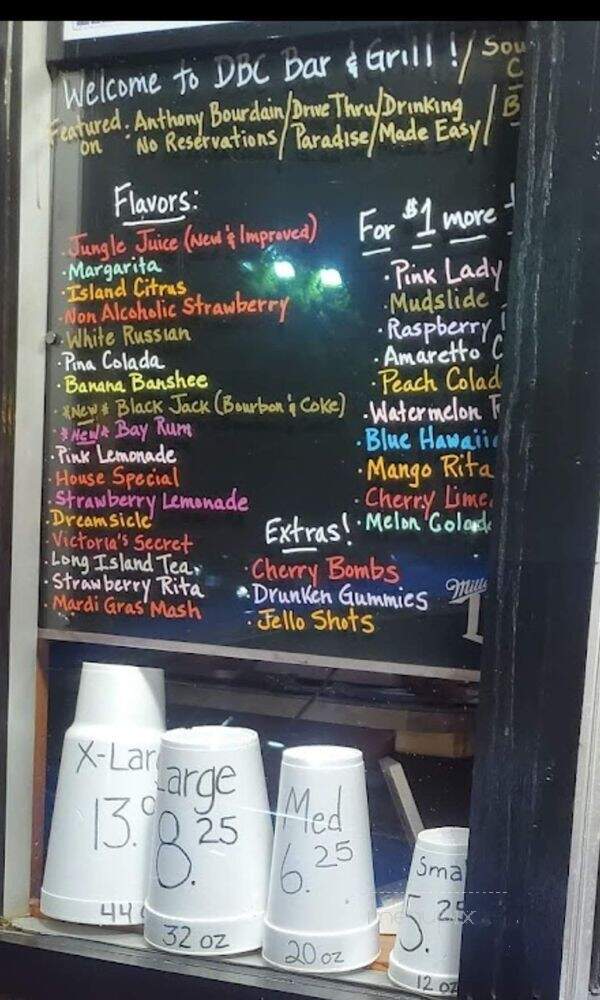 Welcome to DBC Bar & Grill !
Featured on : Anthony Bourdain No Reservations / Drive Thru Paradise / Drinking Made Easy /
Flavors:
· Jungle Juice (New & Improved)
· Margarita
· Island Citrus
· Non Alcoholic Strawberry
· White Russian
· Pina Colada
· Banana Banshee
· *New* Black Jack (Bourbon & Coke)
· *New* Bay Rum
· Pink Lemonade
· House Special
· Strawberry Lemonade
· Dreamsicle
· Victoria's Secret
· Long Island Tea
· Strawberry Rita
· Mardi Gras Mash
For $1 more
· Pink Lady
· Mudslide
· Raspberry
· Amaretto C
· Peach Colad
· Watermelon
· Blue Hawaii
· Mango Rita
· Cherry Lime
· Melon Colad
Extras!
· Cherry Bombs
· Drunken Gummies
· Jello Shots
Mille
X-Lar
13.
44
Large
8.25
32 oz
Med
6.25
20 oz
Smal
5.25
12 oz